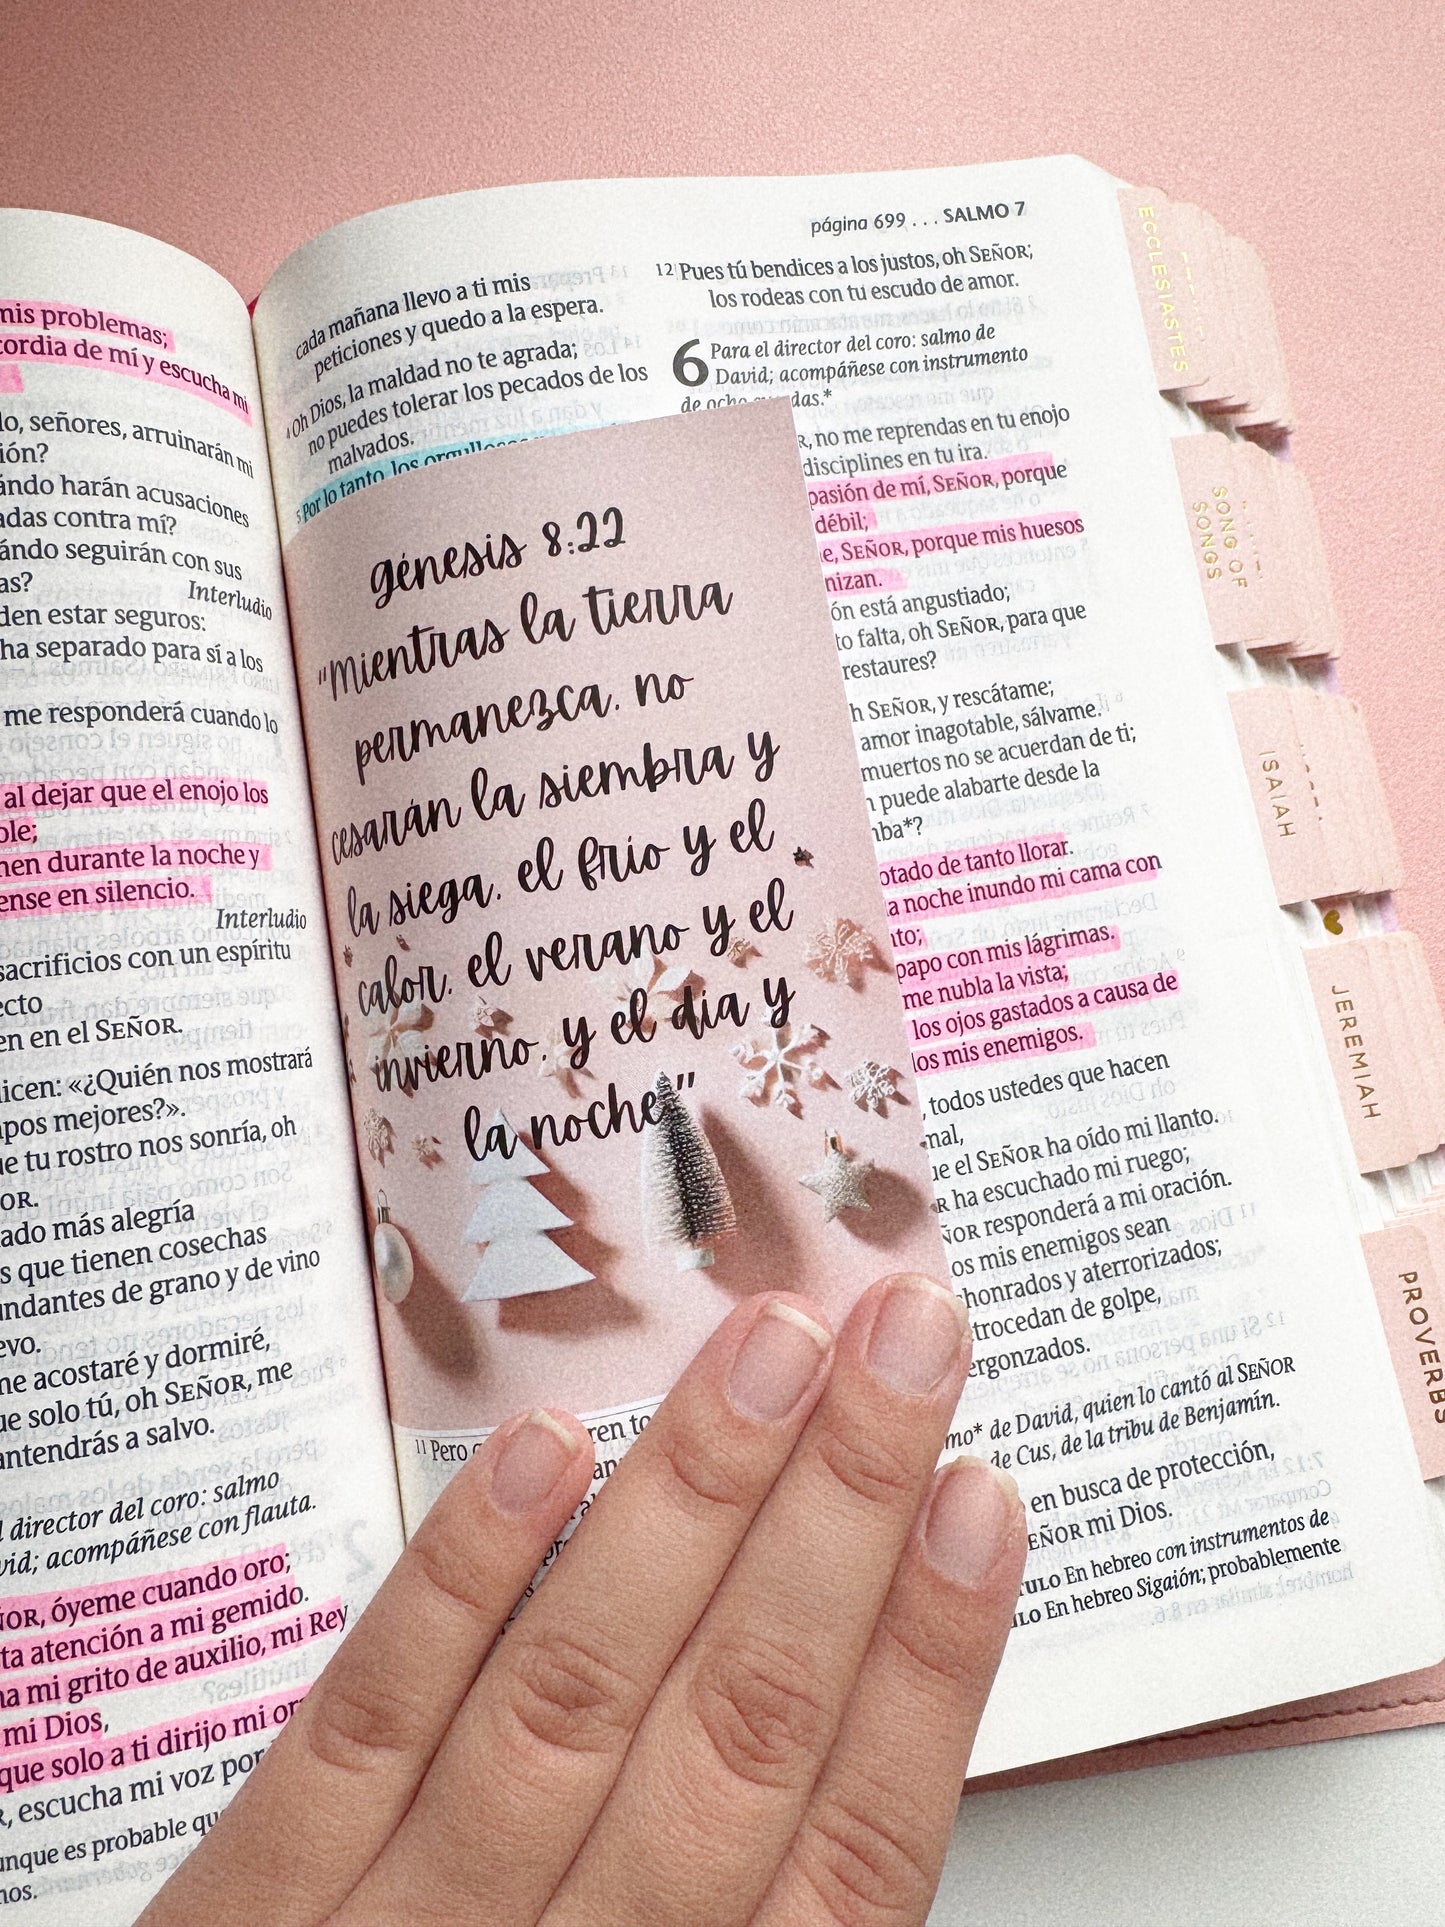 mis problemas;
cordia de mí y escucha mi
lo, señores, arruinarán mi
ión?
ándo harán acusaciones
adas contra mí?
ándo seguirán con sus
as?
Interludio
den estar seguros:
ha separado para sí a los
me responderá cuando lo
al dejar que el enojo los
ole;
nen durante la noche y
ense en silencio.
Interludio
sacrificios con un espíritu
ecto
en en el SEÑOR.
dicen: «¿Quién nos mostrará
pos mejores?».
ue tu rostro nos sonría, oh
OR.
ado más alegría
s que tienen cosechas
undantes de grano y de vino
evo.
me acostaré y dormiré,
ue solo tú, oh SEÑOR, me
antendrás a salvo.
l director del coro: salmo
vid; acompáñese con flauta.
ÑOR, óyeme cuando oro;
ta atención a mi gemido.
ha mi grito de auxilio, mi Rey
mi Dios,
que solo a ti dirijo mi or
R, escucha mi voz por
unque es probable qu
nos.
página 699 . . . SALMO 7
cada mañana llevo a ti mis
peticiones y quedo a la espera.
4 Oh Dios, la maldad no te agrada;
no puedes tolerar los pecados de los
malvados.
5 Por lo tanto, los orgullosos
génesis 8:22
"Mientras la tierra
permanezca, no
cesarán la siembra y
la siega, el frío y el
calor, el verano y el
invierno, y el día y
la noche"
11 Pero
ren to
12 Pues tú bendices a los justos, oh SEÑOR;
los rodeas con tu escudo de amor.
6 Para el director del coro: salmo de
David; acompáñese con instrumento
de ocho cuerdas.*
R, no me reprendas en tu enojo
disciplines en tu ira.
pasión de mí, SEÑOR, porque
débil;
e, SEÑOR, porque mis huesos
nizan.
ón está angustiado;
to falta, oh SEÑOR, para que
restaures?
h SEÑOR, y rescátame;
amor inagotable, sálvame.
muertos no se acuerdan de ti;
n puede alabarte desde la
mba*?
otado de tanto llorar.
a noche inundo mi cama con
nto;
papo con mis lágrimas.
me nubla la vista;
los ojos gastados a causa de
los mis enemigos.
, todos ustedes que hacen
mal,
ue el SEÑOR ha oído mi llanto.
R ha escuchado mi ruego;
ÑOR responderá a mi oración.
os mis enemigos sean
honrados y aterrorizados;
trocedan de golpe,
ergonzados.
mo* de David, quien lo cantó al SEÑOR
de Cus, de la tribu de Benjamín.
en busca de protección,
EÑOR mi Dios.
TULO En hebreo con instrumentos de
ULO En hebreo Sigaión; probablemente
ECCLESIASTES
SONG OF
SONGS
ISAIAH
JEREMIAH
PROVERBS